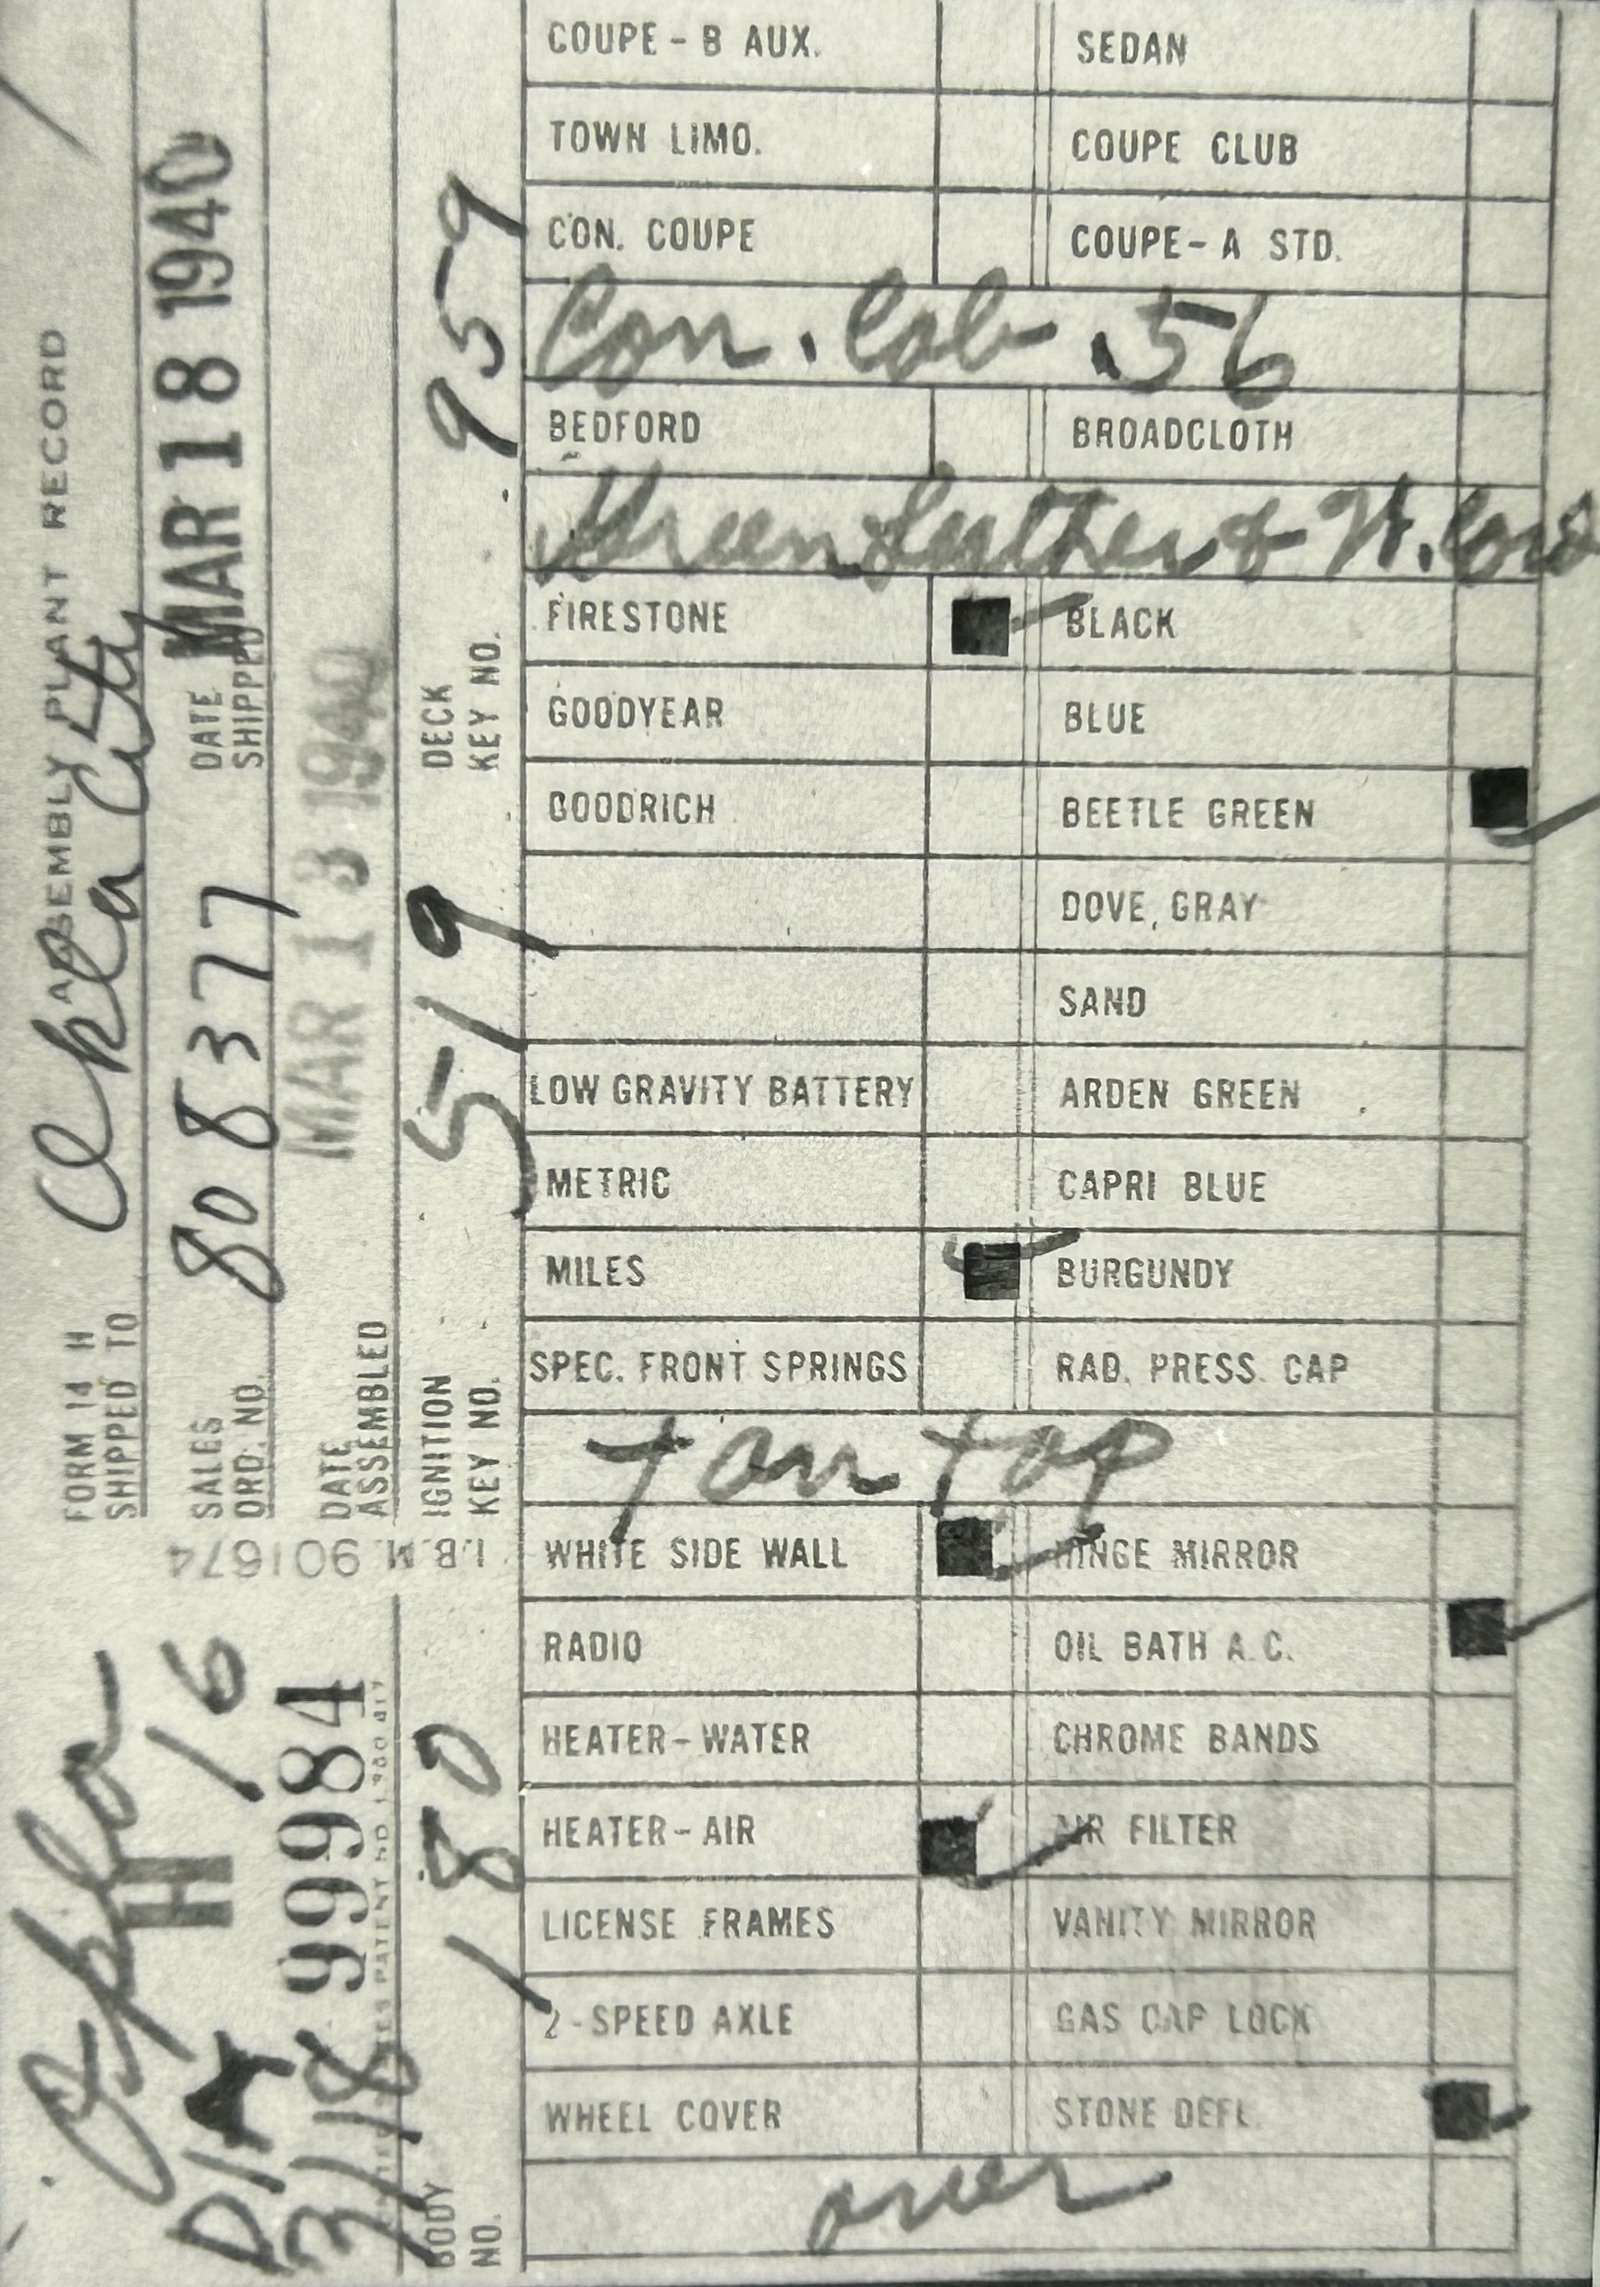 ASSEMBLY PLANT RECORD
FORM 14 H
SHIPPED TO Okla City
SALES ORD. NO. 808377
DATE SHIPPED MAR 18 1940
DATE ASSEMBLED MAR 13 1940
IGNITION KEY NO. 519
DECK KEY NO. 959
I.B.M. 901674
Okla
H 16
99984
3/18
BODY NO. 180
COUPE - B AUX. SEDAN
TOWN LIMO. COUPE CLUB
CON. COUPE COUPE - A STD.
Con. Cab 56
BEDFORD BROADCLOTH
Green Leather & W. Cord
FIRESTONE BLACK
GOODYEAR BLUE
GOODRICH BEETLE GREEN
DOVE GRAY
SAND
LOW GRAVITY BATTERY ARDEN GREEN
METRIC CAPRI BLUE
MILES BURGUNDY
SPEC. FRONT SPRINGS RAD. PRESS. CAP
Tan top
WHITE SIDE WALL HINGE MIRROR
RADIO OIL BATH A.C.
HEATER - WATER CHROME BANDS
HEATER - AIR AIR FILTER
LICENSE FRAMES VANITY MIRROR
2 - SPEED AXLE GAS CAP LOCK
WHEEL COVER STONE DEFL.
over